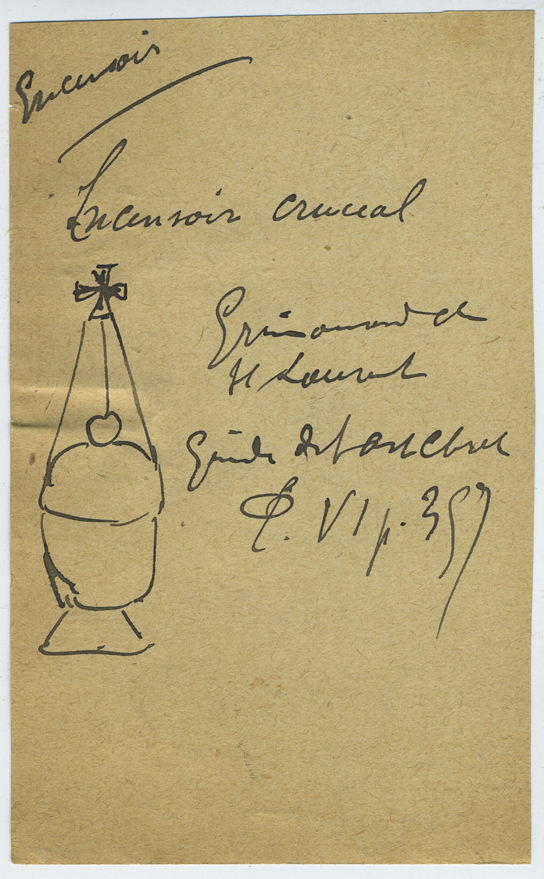 Encensoir
Encensoir crucial
Grimouard de
St Laurent
Guide de l'art Chret
T. VI p. 357